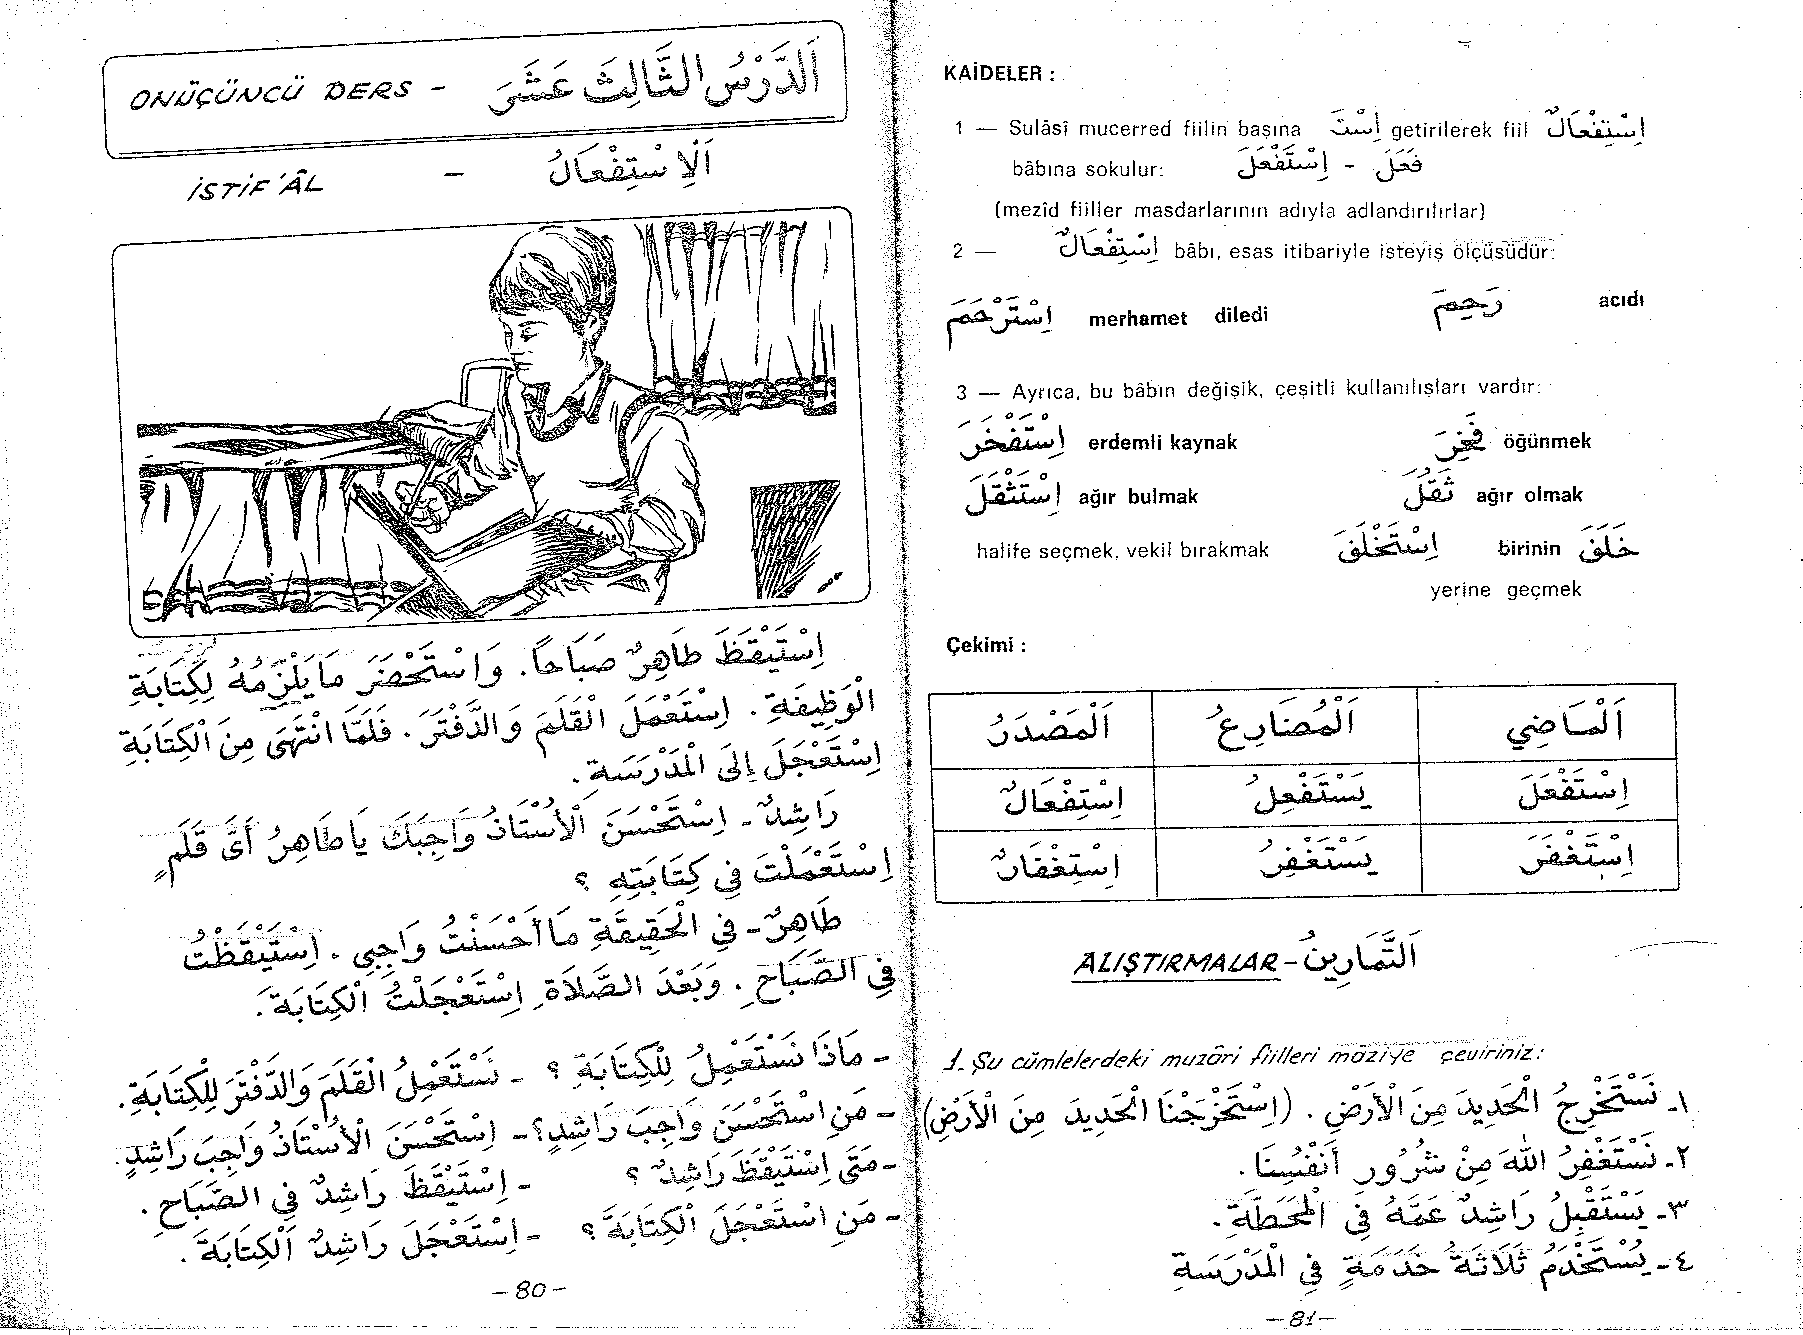 ONÜÇÜNCÜ DERS - اَلدَّرْسُ الثَّالِثَ عَشَرَ
İSTİF'ÂL - اَلْاِسْتِفْعَالُ
اِسْتَيْقَظَ طَاهِرٌ صَبَاحاً. وَاسْتَحْضَرَ مَا يَلْزَمُهُ لِكِتَابَةِ
الْوَظِيفَةِ. اِسْتَعْمَلَ الْقَلَمَ وَالدَّفْتَرَ. فَلَمَّا انْتَهَى مِنَ الْكِتَابَةِ
اِسْتَعْجَلَ إِلَى الْمَدْرَسَةِ.
رَاشِدٌ - اِسْتَحْسَنَ الْأُسْتَاذُ وَاجِبَكَ يَا طَاهِرُ أَيَّ قَلَمٍ
اِسْتَعْمَلْتَ فِي كِتَابَتِهِ ؟
طَاهِرٌ - فِي الْحَقِيقَةِ مَا أَحْسَنْتُ وَاجِبِي. اِسْتَيْقَظْتُ
فِي الصَّبَاحِ. وَبَعْدَ الصَّلَاةِ اِسْتَعْجَلْتُ الْكِتَابَةَ.
- مَاذَا نَسْتَعْمِلُ لِلْكِتَابَةِ ؟ - نَسْتَعْمِلُ الْقَلَمَ وَالدَّفْتَرَ لِلْكِتَابَةِ.
- مَنِ اسْتَحْسَنَ وَاجِبَ رَاشِدٍ؟ - اِسْتَحْسَنَ الْأُسْتَاذُ وَاجِبَ رَاشِدٍ.
- مَتَى اِسْتَيْقَظَ رَاشِدٌ ؟ - اِسْتَيْقَظَ رَاشِدٌ فِي الصَّبَاحِ.
- مَنِ اسْتَعْجَلَ الْكِتَابَةَ ؟ - اِسْتَعْجَلَ رَاشِدٌ اَلْكِتَابَةَ.
- 80 -
KAİDELER :
1 — Sulâsî mucerred fiilin başına اِسْتَ getirilerek fiil اِسْتِفْعَالٌ
bâbına sokulur: فَعَلَ - اِسْتَفْعَلَ
(mezîd fiiller masdarlarının adıyla adlandırılırlar)
2 — اِسْتِفْعَالٌ bâbı, esas itibariyle isteyiş ölçüsüdür:
اِسْتَرْحَمَ merhamet diledi رَحِمَ acıdı
3 — Ayrıca, bu bâbın değişik, çeşitli kullanılışları vardır:
اِسْتَفْخَرَ erdemli kaynak فَخِرَ öğünmek
اِسْتَثْقَلَ ağır bulmak ثَقُلَ ağır olmak
halife seçmek, vekil bırakmak اِسْتَخْلَفَ birinin خَلَفَ
yerine geçmek
Çekimi :
اَلْمَاضِي اَلْمُضَارِعُ اَلْمَصْدَرُ
اِسْتَفْعَلَ يَسْتَفْعِلُ اِسْتِفْعَالٌ
اِسْتَغْفَرَ يَسْتَغْفِرُ اِسْتِغْفَارٌ
ALIŞTIRMALAR - اَلتَّمَارِينُ
1. Şu cümlelerdeki muzâri fiilleri mâziye çeviriniz:
١- نَسْتَخْرِجُ الْحَدِيدَ مِنَ الْأَرْضِ. (اِسْتَخْرَجْنَا الْحَدِيدَ مِنَ الْأَرْضِ)
٢- نَسْتَغْفِرُ اللهَ مِنْ شُرُورِ أَنْفُسِنَا.
٣- يَسْتَقْبِلُ رَاشِدٌ عَمَّهُ فِي الْمَحَطَّةِ.
٤- يُسْتَخْدَمُ ثَلَاثَةُ خَدَمَةٍ فِي الْمَدْرَسَةِ
- 81 -